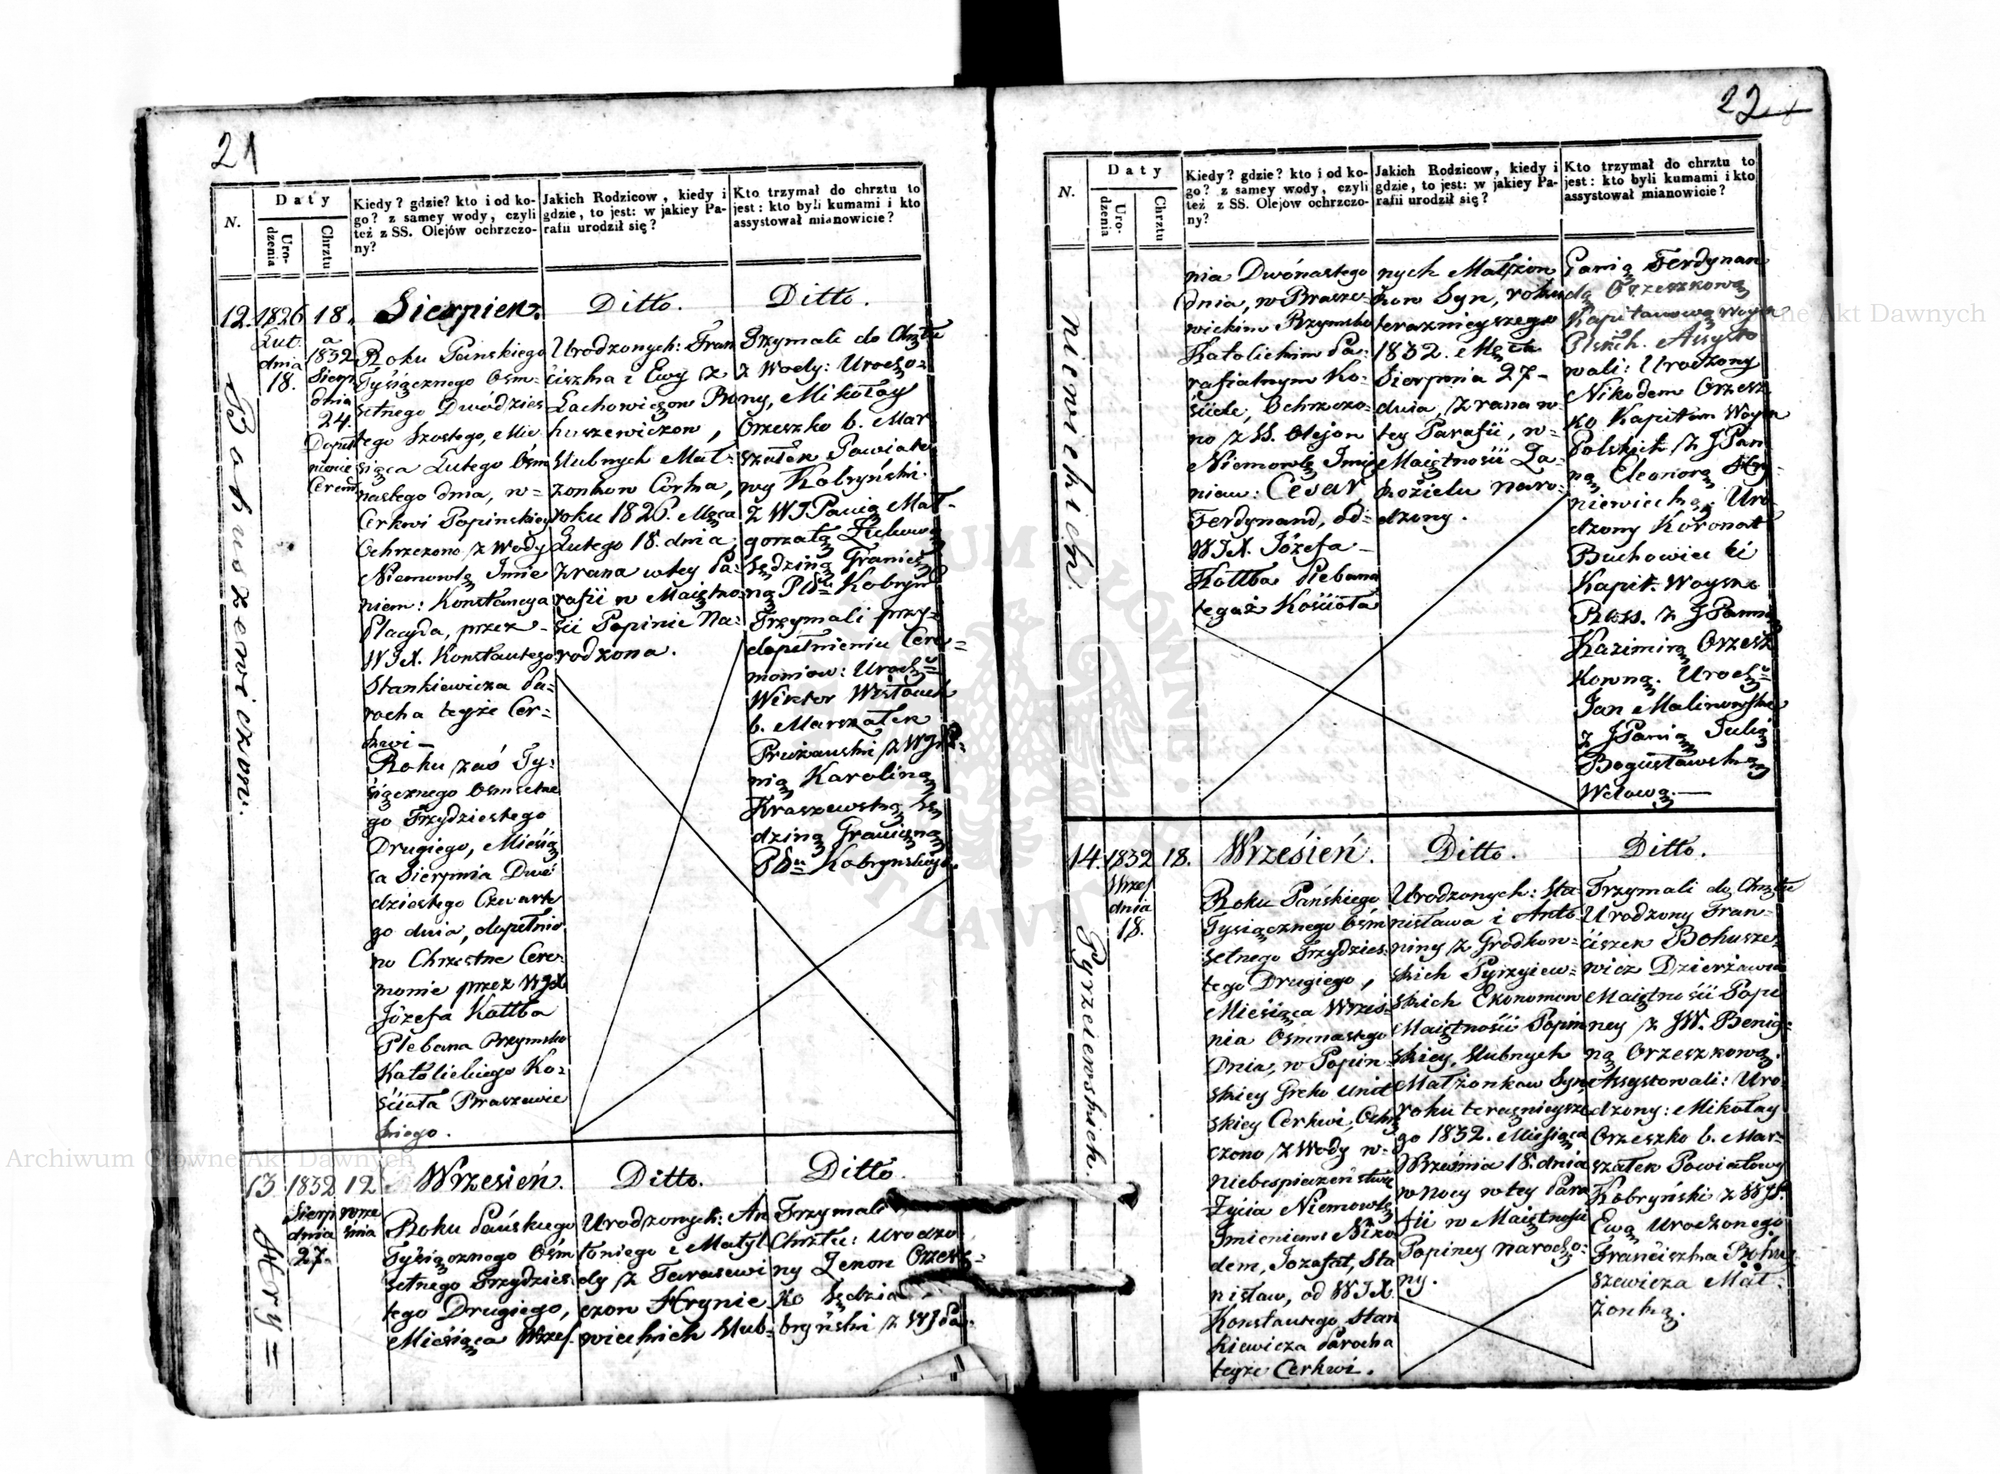 21
N.
Daty
Uro-
dzenia
Chrztu
Kiedy? gdzie? kto i od ko-
go? z samey wody, czyli
też z SS. Olejów ochrzczo-
ny?
Jakich Rodzicow, kiedy i
gdzie, to jest: w jakiey Pa-
rafii urodził się?
Kto trzymał do chrztu to
jest: kto byli kumami i kto
assystował mianowicie?
12.
1826
Lut.
dnia
18.
18.
a
1832
Sierp
dnia
24.
Bohuszewiczow.
Sierpien.
Roku Panskiego
Tysiącznego Ośm-
setnego Dwódzies
tego Szostego, Mie
siąca Lutego Ośm
nastego dnia, w-
Cerkwi Popinskiey
Ochrzczono z Wody
Niemowlę Imie
niem: Konstancya
Placyda, przez
WJX. Konstantego
Stankiewicza Pa-
rocha teyże Cer-
kwi —
Roku zaś Ty-
siącznego Ośmsetne
go Trzydziestego
Drugiego, Miesią
ca Sierpnia Dwó
dziestego Czwarte
go dnia, dopełnio
no Chrzestne Cere-
monie przez WJX
Józefa Kattba
Plebana Rzymsko
Katolickiego Ko-
ścioła Braszewic
kiego.
Ditto.
Urodzonych: Fran
ciszka i Ewy z
Lachowiczow Bo
huszewiczow,
Slubnych Mał-
żonkow Córka,
roku 1826. Msca
Lutego 18. dnia
z rana w tey Pa-
rafii w Maiętno-
ści Popinie Na-
rodzona.
Ditto.
Trzymali do Chrztu
z Wody: Urodzo-
ny, Mikołay
Orzeszko b. Mar
szałek Powiato
wy Kobryński.
z WJPanią Mał-
gorzatą
Sędziną Granicz
ną Pttu Kobryń
Trzymali przy
dopełnieniu Cere-
moniow: Urodz:
Wiktor Wisłouch
b. Marszałek
Prużański z WJPa-
nią Karoliną
Kraszewską Sę
dziną Graniczną
Pttu Kobryńskiego.
13
1832
Sierp
dnia
27.
12
wrze
śnia
Hry=
Wrzesień.
Roku Pańskiego
Tysiącznego Ośm
setnego Trzydzies
tego Drugiego,
Miesiąca Wrześ.
Ditto.
Urodzonych: An
toniego i Matyl
dy z Tarasewi
czow Hrynie
wieckich Slub-
Ditto.
Trzymali
Chrztu: Urodzo
ny Zenon Orzesz-
ko Sędzia
bryński z WJPa-
22
N.
Daty
Uro-
dzenia
Chrztu
Kiedy? gdzie? kto i od ko-
go? z samey wody, czyli
też z SS. Olejow ochrzczo-
ny?
Jakich Rodzicow, kiedy i
gdzie, to jest: w jakiey Pa-
rafii urodził się?
Kto trzymał do chrztu to
jest: kto byli kumami i kto
assystował mianowicie?
niewieckich.
nia Dwónastego
dnia, w Brasze-
wickim Rzymsko
Katolickim Pa-
rafialnym Ko-
ściele, Ochrzczo-
no z SS. Olejow
Niemowlę Imie
niem: Cesar,
Ferdynand, od-
WJX. Józefa
Kattba Plebana
tegoż Kościoła
nych Małżon
kow Syn, roku
teraznieyszego
1832. Msca
Sierpnia 27-
dnia, z rana w-
tey Parafii, w-
Maiętności Za-
koźielu naro-
dzony.
Panią Ferdynan
dą Orzeszkową
Kapitanową Woysk
Polskch. Assysto
wali: Urodzony
Nikodem Orzesz
ko Kapitan Woysk
Polskich z JPan
ną Eleonorą Hry-
niewiecką, Uro-
dzony Koronat
Buchowiecki
Kapit. Woysk
Ross. z JPanną
Kazimirą Orzesz
kowną. Urodz:
Jan Malinowski
z JPanią Julią
Bogusławską
Wdową. —
14.
1832
Wrześ.
dnia
18.
18.
Pyrzeiewskich.
Wrzesień.
Roku Pańskiego
Tysiącznego Ośm
setnego Trzydzies-
tego Drugiego,
Miesiąca Wrześ-
nia Ośmnastego
Dnia, w Popin-
skiey Greko Unit
skiey Cerkwi, Ochrz
czono z Wody w-
niebespieczeństwie
Życia Niemowlę
Imieniem: Niko
dem, Jozafat, Sta
nisław, od WJX
Konstantego Stan
kiewicza Parocha
teyże Cerkwi.
Ditto.
Urodzonych: Sta-
nisława i Anto
niny z Grodkow-
skich Pyrzyiew-
skich Ekonomow
Maiętności Popin
skiey, Slubnych
Małżonkow Syn
roku teraznieysze
go 1832. Miesiąca
Września 18. dnia
w nocy w tey Para
fii w Maiętności
Popiney narodzo-
ny.
Ditto.
Trzymali do Chrztu
Urodzony Fran-
ciszek Bohusze-
wicz Dzierżawca
Maiętności Popi
ney z JW. Benig-
ną Orzeszkową.
Assystowali: Uro-
dzony: Mikołay
Orzeszko b. Mar-
szałek Powiatowy
Kobryński z WJP.
Ewą Urodzonego
Franciszka Bohu-
szewicza Mał-
żonką.
Archiwum Główne Akt Dawnych